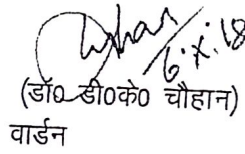 6.X.18
(डॉ0 डी0के0 चौहान)
वार्डन